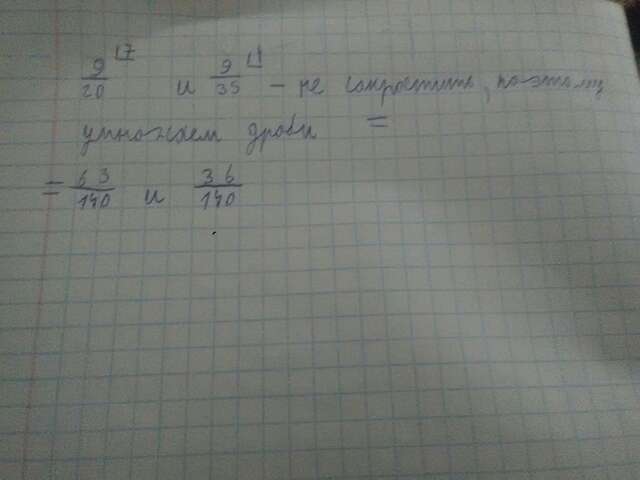 9/20 ⌊7 и 9/35 ⌊4 - не сократить, поэтому
умножаем дроби =
= 63/140 и 36/140